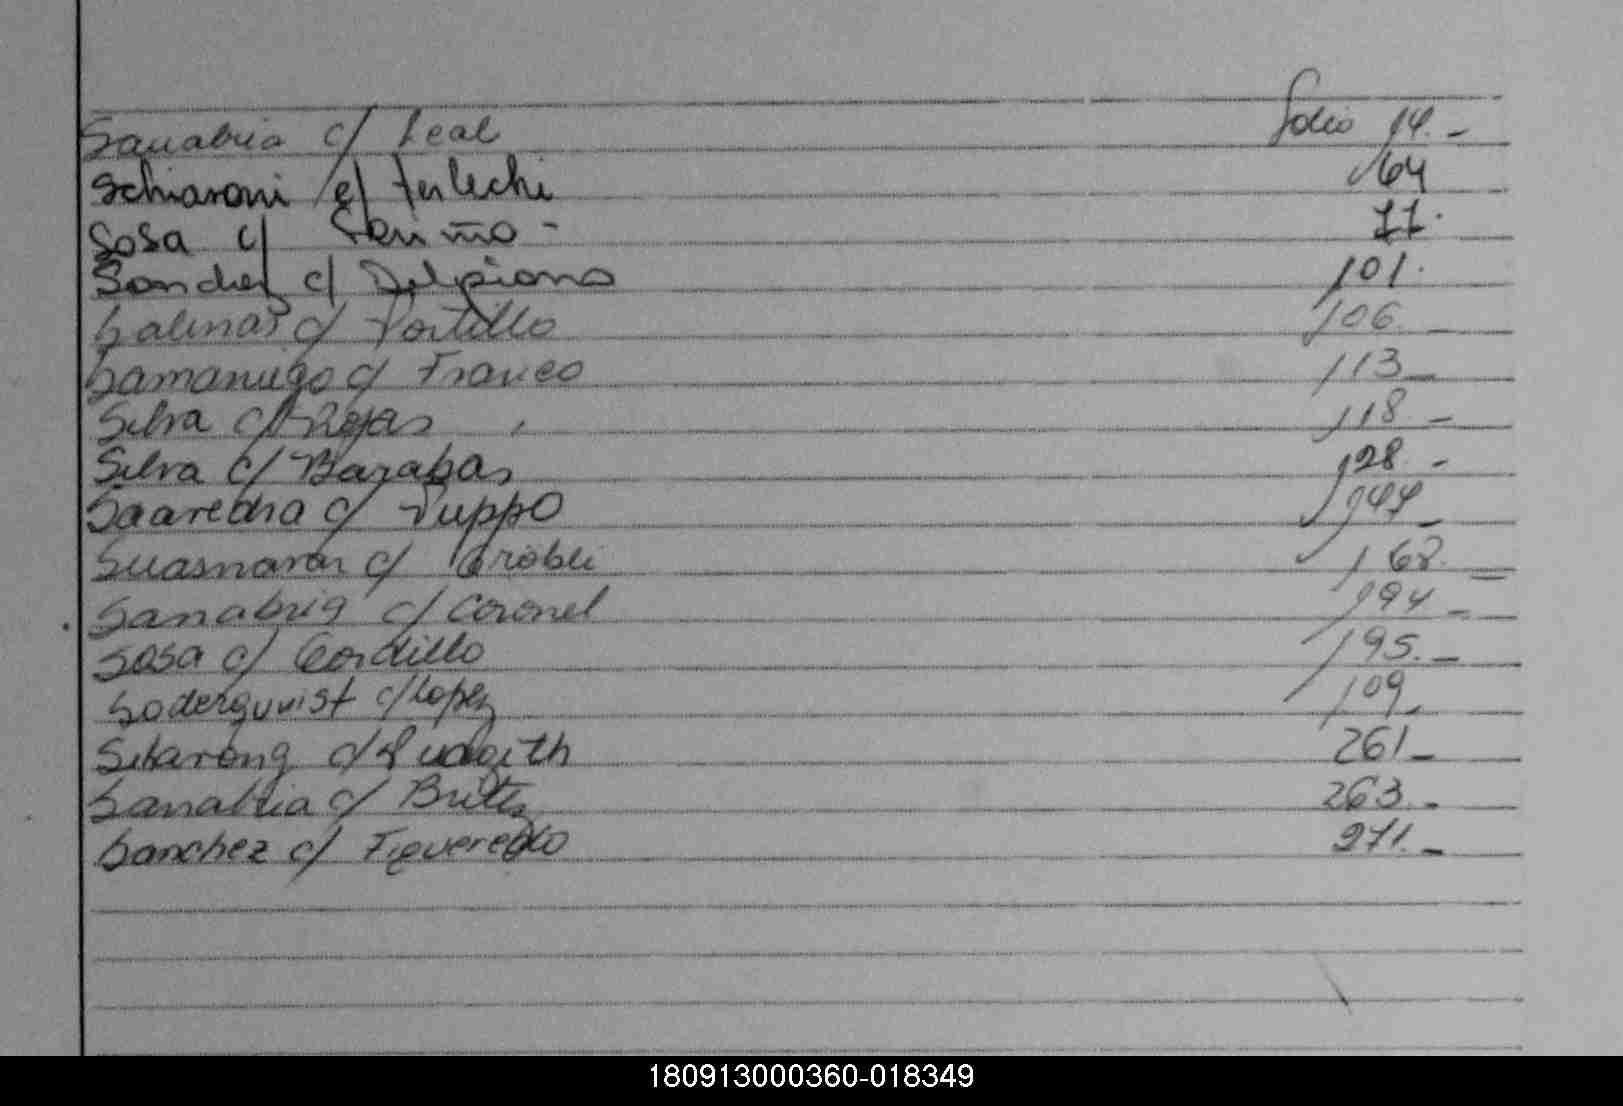 Sanabria c/ Leal Folio 14.-
Schiaroni c/ Ferlechi 64
Sosa c/ 77.
Sanchez c/ Delpiano 101.
Salinas c/ Portillo 106.-
Samaniego c/ Franco 113-
Silva c/ Rojas 118-
Silva c/ Barabas 128-
Saavedra c/ Puppo 147-
Suasnavar c/ 168.
Sanabria c/ Coronel 194-
Sosa c/ Gordillo 195.-
Soderquist c/ Lopez 109-
c/ 261-
Sanabria c/ Britez 263.-
Sanchez c/ Figueredo 271.-
180913000360-018349